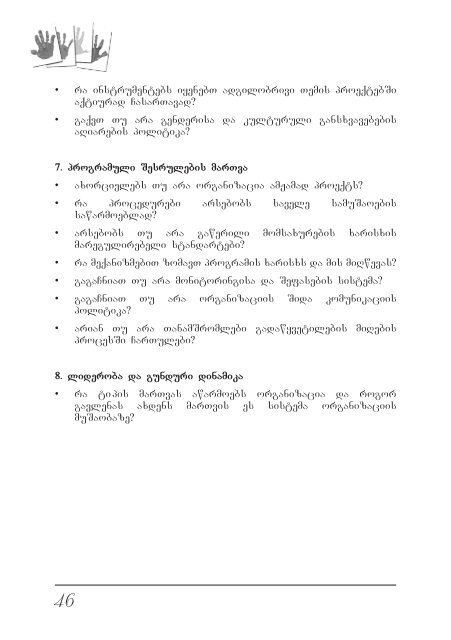 • რა ინსტრუმენტებს იყენებთ ადგილობრივი თემის პროექტებში
აქტიურად ჩასართავად?
• გაქვთ თუ არა გენდერისა და კულტურული განსხვავებების
აღიარების პოლიტიკა?
7. პროგრამული შესრულების მართვა
• ახორციელებს თუ არა ორგანიზაცია ამჟამად პროექტს?
• რა პროცედურები არსებობს საველე სამუშაოების
საწარმოებლად?
• არსებობს თუ არა გაწერილი მომსახურების ხარისხის
მარეგულირებელი სტანდარტები?
• რა მექანიზმებით ზომავთ პროგრამის ხარისხს და მის მიღწევას?
• გაგაჩნიათ თუ არა მონიტორინგისა და შეფასების სისტემა?
• გაგაჩნიათ თუ არა ორგანიზაციის შიდა კომუნიკაციის
პოლიტიკა?
• არიან თუ არა თანამშრომლები გადაწყვეტილების მიღების
პროცესში ჩართულები?
8. ლიდერობა და გუნდური დინამიკა
• რა ტიპის მართვას აწარმოებს ორგანიზაცია და როგორ
გავლენას ახდენს მართვის ეს სისტემა ორგანიზაციის
მუშაობაზე?
46